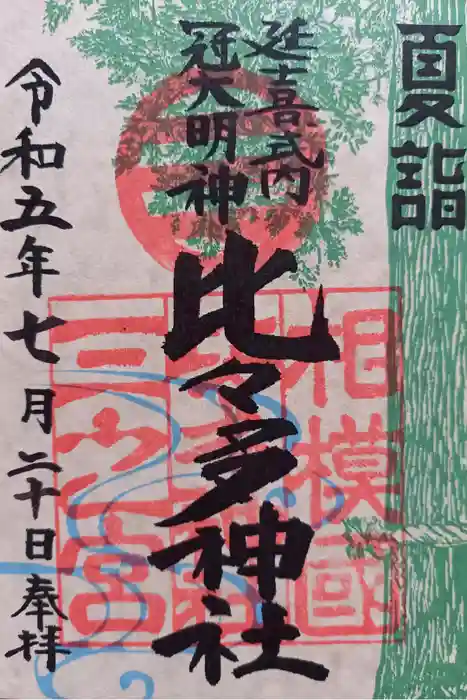 夏詣
延喜式内
冠大明神
比々多神社
令和五年七月二十日奉拝
相模國
三之宮